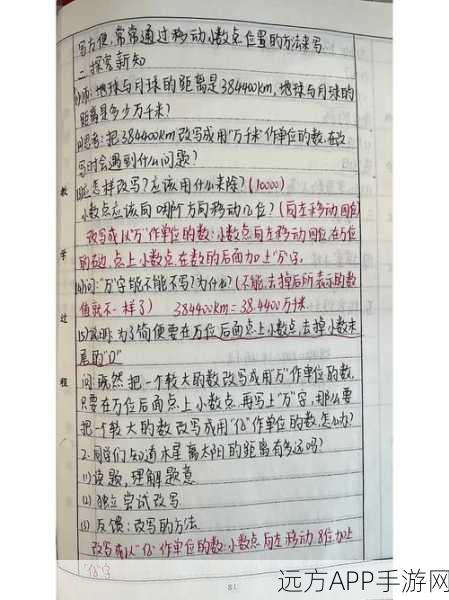 写方便,常常通过移动小数点位置的方法来写
二、探究新知
问:地球与月球的距离是384400km,地球与月球的
距离是多少万千米?
思考:把384400km改写成用"万千米"作单位的数,在改
写时会遇到什么问题?
怎样改写?应该用什么来除?(10000)
小数点应该向哪个方向移动几位?(向左移动四位)
改写成以"万"作单位的数:小数点向左移动四位,在万位
的右边,点上小数点,在数的后面加上"万"字.
(4)问:"万"字能不能不写?为什么?(不能,去掉后所表示的数
值就不一样了) 384400km=38.4400万千米.
(5)说明:为了简便要在万位后面点上小数点,去掉小数末
尾的"0"
问:既然把一个较大的数改写成用"万"作单位的数,
只要在万位后面点上小数点,再写上"万"字,那么要
把一个较大的数改写成用"亿"作单位的数,怎么办?
2.同学们知道木星离太阳的距离有多远吗?
(1)读题,理解题意
(2)独立尝试改写
(3)反馈:改写的方法
改写成以"亿"作单位的数:小数点向左移动8位,加上
"亿"字
教学过程
81
远方APP手游网